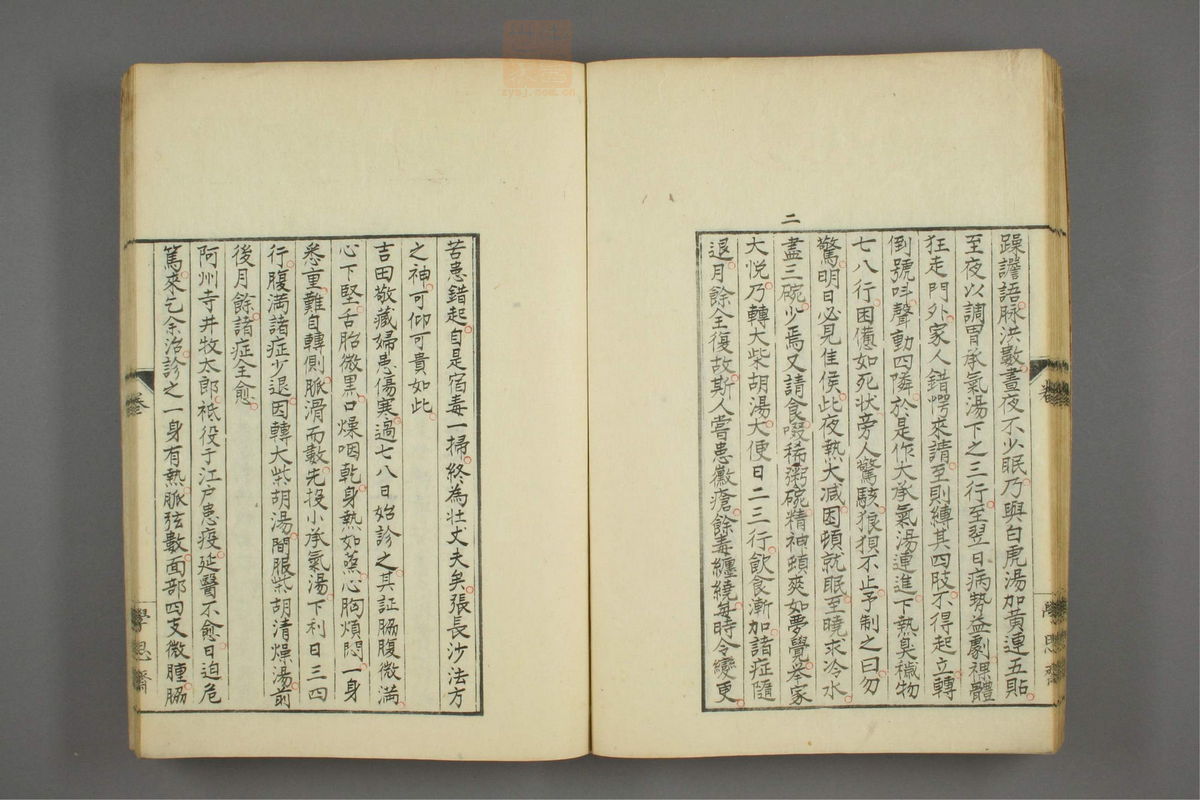 躁譫語脉洪數晝夜不少眠乃與白虎湯加黃連五貼
至夜以調胃承氣湯下之三行至翌日病勢益劇裸體
狂走門外家人錯愕來請至則縛其四肢不得起立轉
倒號叫聲動四隣於是作大承氣湯連進下熱臭穢物
七八行困憊如死狀旁人驚駭狼狽不止予制之曰勿
驚明日必見佳候此夜熱大減困頓就眠至曉求冷水
盡三碗少焉又請食啜稀粥碗精神頓爽如夢覺舉家
大悅乃轉大柴胡湯大便日二三行飲食漸加諸症隨
退月餘全復故斯人嘗患黴瘡餘毒纏繞每時令變更
二
苦患錯起自是宿毒一掃終為壮丈夫矣張長沙法方
之神可仰可貴如此
吉田敬藏婦患傷寒過七八日始診之其証脇腹微満
心下堅舌胎微黒口燥咽乾身熱如蒸心胸煩悶一身
悉重難自轉側脈滑而數先投小承氣湯下利日三四
行腹満諸症少退因轉大柴胡湯間服柴胡清燥湯前
後月餘諸症全愈
阿州寺井牧太郎祗役于江户患疫延醫不愈日迫危
篤來乞余治診之一身有熱脈弦數面部四支微腫脇
學思齋
zysj.com.cn